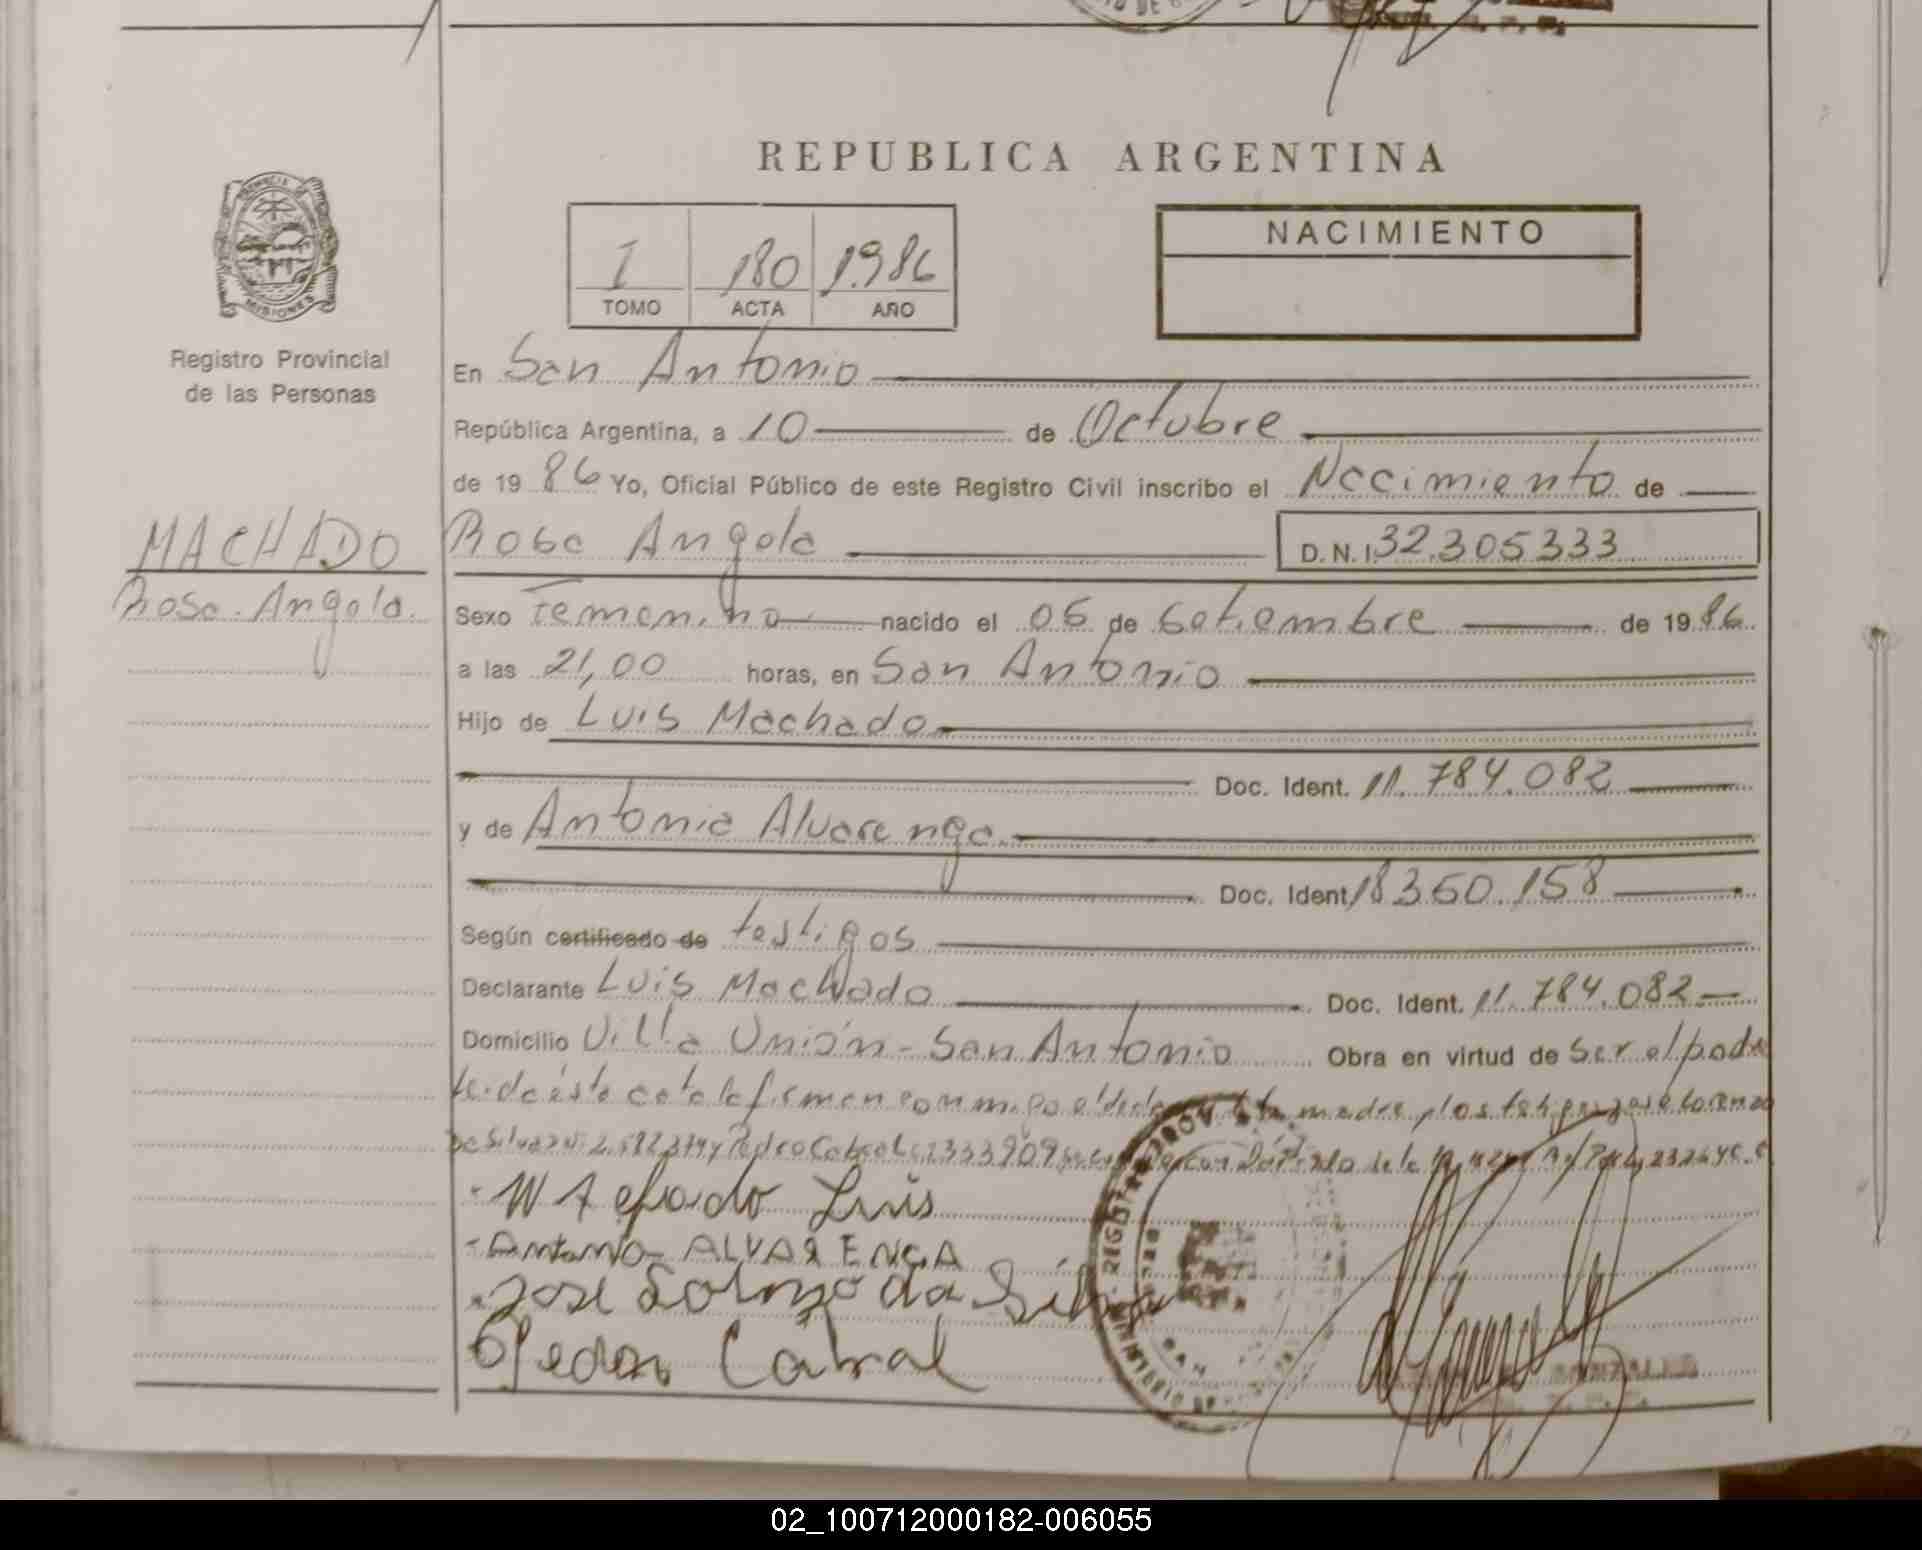 REPUBLICA ARGENTINA
I 180 1.986
TOMO ACTA AÑO
NACIMIENTO
PROVINCIA DE
MISIONES
Registro Provincial
de las Personas
MACHADO
Rosa Angela.
En San Antonio
República Argentina, a 10 de Octubre
de 19 86 Yo, Oficial Público de este Registro Civil inscribo el Nacimiento de
Rosa Angela D. N. I. 32.305333
Sexo Femenino nacido el 05 de Setiembre de 19 86
a las 21,00 horas, en San Antonio
Hijo de Luis Machado
Doc. Ident. 11.784.082
y de Antonia Alvarenga
Doc. Ident 18360.158
Según certificado de testigos
Declarante Luis Machado Doc. Ident. 11.784.082
Domicilio Villa Unión - San Antonio Obra en virtud de ser el padre
acta la firman conmigo el madre y los testigos José Lorenzo
Da Silva y Pedro Cabral
Luis
Antonia ALVARENGA
José da Silva
Pedro Cabral
02_100712000182-006055